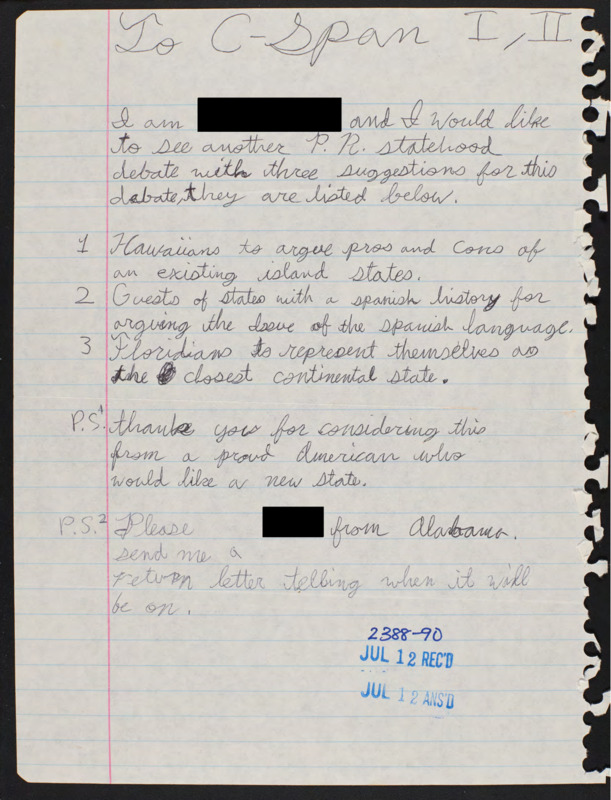 To C-Span I, II
I am and I would like
to see another P. R. statehood
debate with three suggestions for this
debate, they are listed below.
1 Hawaiians to argue pros and cons of
an existing island states.
2 Guests of states with a spanish history for
arguing the issue of the spanish language.
3 Floridians to represent themselves as
the closest continental state.
P.S.1 thank you for considering this
from a proud American who
would like a new state.
P.S.2 Please from Alabama.
send me a
return letter telling when it will
be on.
2388-90
JUL 12 REC'D
JUL 12 ANS'D